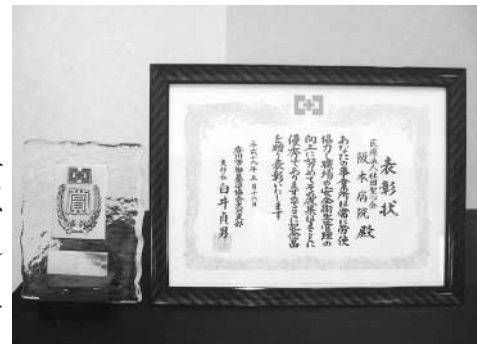 表彰状
医療法人社団聖心会
阪本病院 殿
あなたの事業所は常に労使
協力し職場の安全衛生管理の
向上に努めてその成果はまことに
優秀でありますのでここに記念品
を贈り表彰いたします
平成十九年五月十六日
香川労働基準協会
支部長 白井貞昇
賞